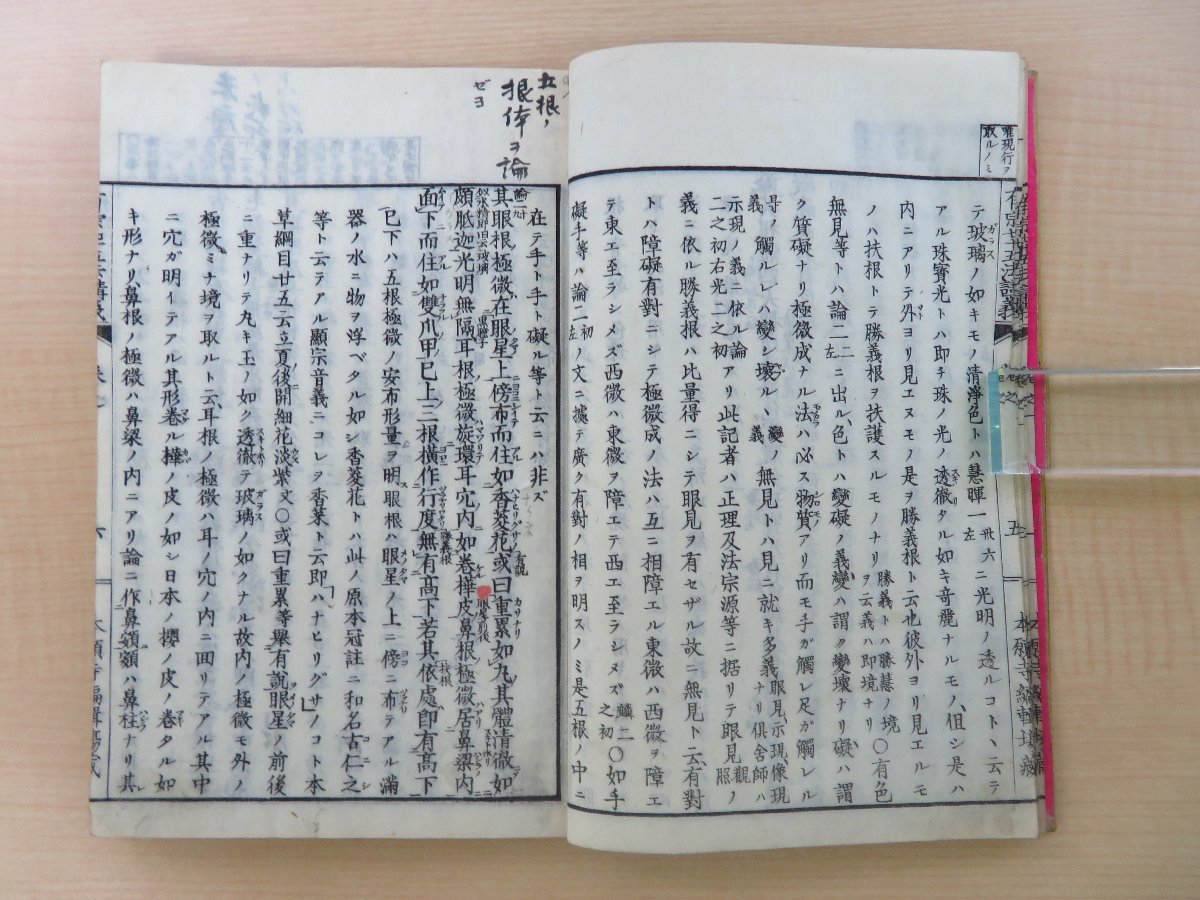 唯現行ヲ
取ルノミ
テ玻璃ノ如キモノ清淨色トハ慧暉一卅六左ニ光明ノ透ルコト、云テ
アル珠寶光トハ即チ珠ノ光ノ透徹タル如キ竒麗ナルモノ、但シ是ハ
内ニアリテ外ヨリ見エヌモノ是ヲ勝義根ト云也彼外ヨリ見エルモ
ノハ扶根トテ勝義根ヲ扶護スルモノナリ勝義トハ勝慧ノ境ヲ云義ハ即境ナリ〇有色
無見等トハ論二二左ニ出ル、色トハ變礙ノ義變ハ謂ク變壞ナリ礙ハ謂
ク質礙ナリ極微成ナル法ハ必ス物質アリ而モ手ガ觸レ足ガ觸レル
ノ觸ルレハ變シ壞ル、義ノ無見トハ見ニ就キ多義ナリ俱舍師ハ眼見示現、像現
示現ノ義ニ依ル論二之初右光二之初アリ此記者ハ正理及法宗源等ニ据リテ眼見觀照ノ
義ニ依ル勝義根ハ比量得ニシテ眼見ヲ有セザル故ニ無見ト云、有對
トハ障礙有對ニシテ極微成ノ法ハ互ニ相障エル東微ハ西微ヲ障エ
テ東エ至ラシメズ西微ハ東微ヲ障エテ西エ至ラシメズ麟二之初〇如手
礙手等ハ論二初左ノ文ニ據テ廣ク有對ノ相ヲ明スノミ是五根ノ中ニ
五
五根ノ
根体ヲ論
ゼヨ
在テ手ト手ト礙ル等ト云ニハ非ズ
其眼根極微在眼星上傍布而住如香荾花或曰重累如丸其體清徹如
頗胝迦光明無隔耳根極微旋環耳穴内如卷樺皮鼻根極微居鼻梁内
面下而住如雙爪甲已上三根横作行度無有髙下若其依處即有髙下
已下ハ五根極微ノ安布形量ヲ明眼根ハ眼星ノ上ニ傍ニ布テアル滿
器ノ水ニ物ヲ浮ベタル如シ香荾花トハ此ノ原本冠註ニ和名古仁之
等ト云テアル顯宗音義ニコレヲ香菜ト云即「ハナヒリグサ」ノコト本
草綱目廿五云立夏後開細花淡紫文〇或曰重累等舉有說眼星ノ前後
ニ重ナリテ丸キ玉ノ如ク透徹テ玻璃ノ如クナル故内ノ極微モ外ノ
極微ミナ境ヲ取ルト云耳根ノ極微ハ耳ノ穴ノ内ニ回リテアル其中
ニ穴ガ明イテアル其形卷ル樺ノ皮ノ如シ日本ノ櫻ノ皮ノ卷タル如
キ形ナリ鼻根ノ極微ハ鼻梁ノ内ニアリ論ニ作鼻頞頞ハ鼻柱ナリ其